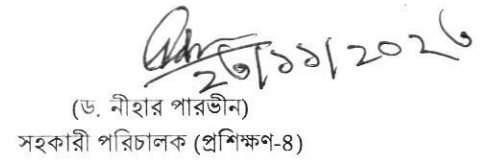 ২৬/১১/২০২৬
(ড. নীহার পারভীন)
সহকারী পরিচালক (প্রশিক্ষণ-৪)